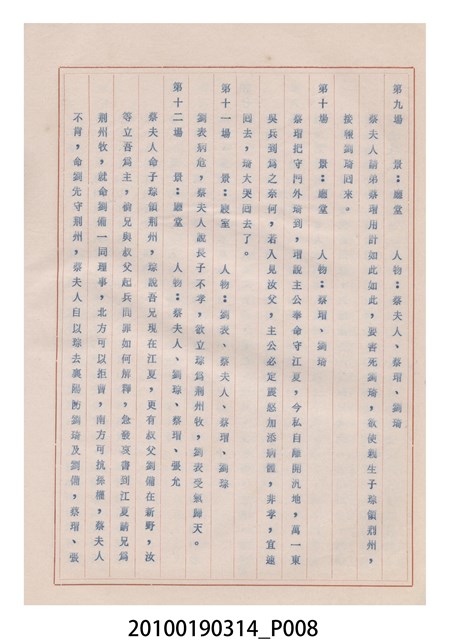 第九場　景：廳堂　人物：蔡夫人、蔡瑁、劉琦
蔡夫人請弟蔡瑁用計如此如此，要害死劉琦，敢使親生子琮領荊州，
按報劉琦回來。
第十場　景：廳堂　人物：蔡瑁、劉琦
蔡瑁把守門外琦到，瑁說主公奉命守江夏，今私自離開汛地，萬一東
吳兵到為之奈何，若入見汝父，主公必定震怒加添病體，非孝，宜速
回去，琦大哭回去了。
第十一場　景：寢室　人物：劉表、蔡夫人、蔡瑁、劉琮
劉表病危，蔡夫人說長子不孝，欲立琮為荊州牧，劉表受氣歸天。
第十二場　景：廳堂　人物：蔡夫人、劉琮、蔡瑁、張允
蔡夫人命子琮領荊州，琮說吾兄現在江夏，更有叔父劉備在新野，汝
等立吾為主，倘兄與叔父起兵問罪如何解釋，急發哀書到江夏請兄為
荊州牧，就命劉備一同理事，北方可以拒曹，南方可抗孫權，蔡夫人
不肯，命劉先守荊州，蔡夫人自以琮去襄陽防劉琦及劉備，蔡瑁、張
20100190314_P008